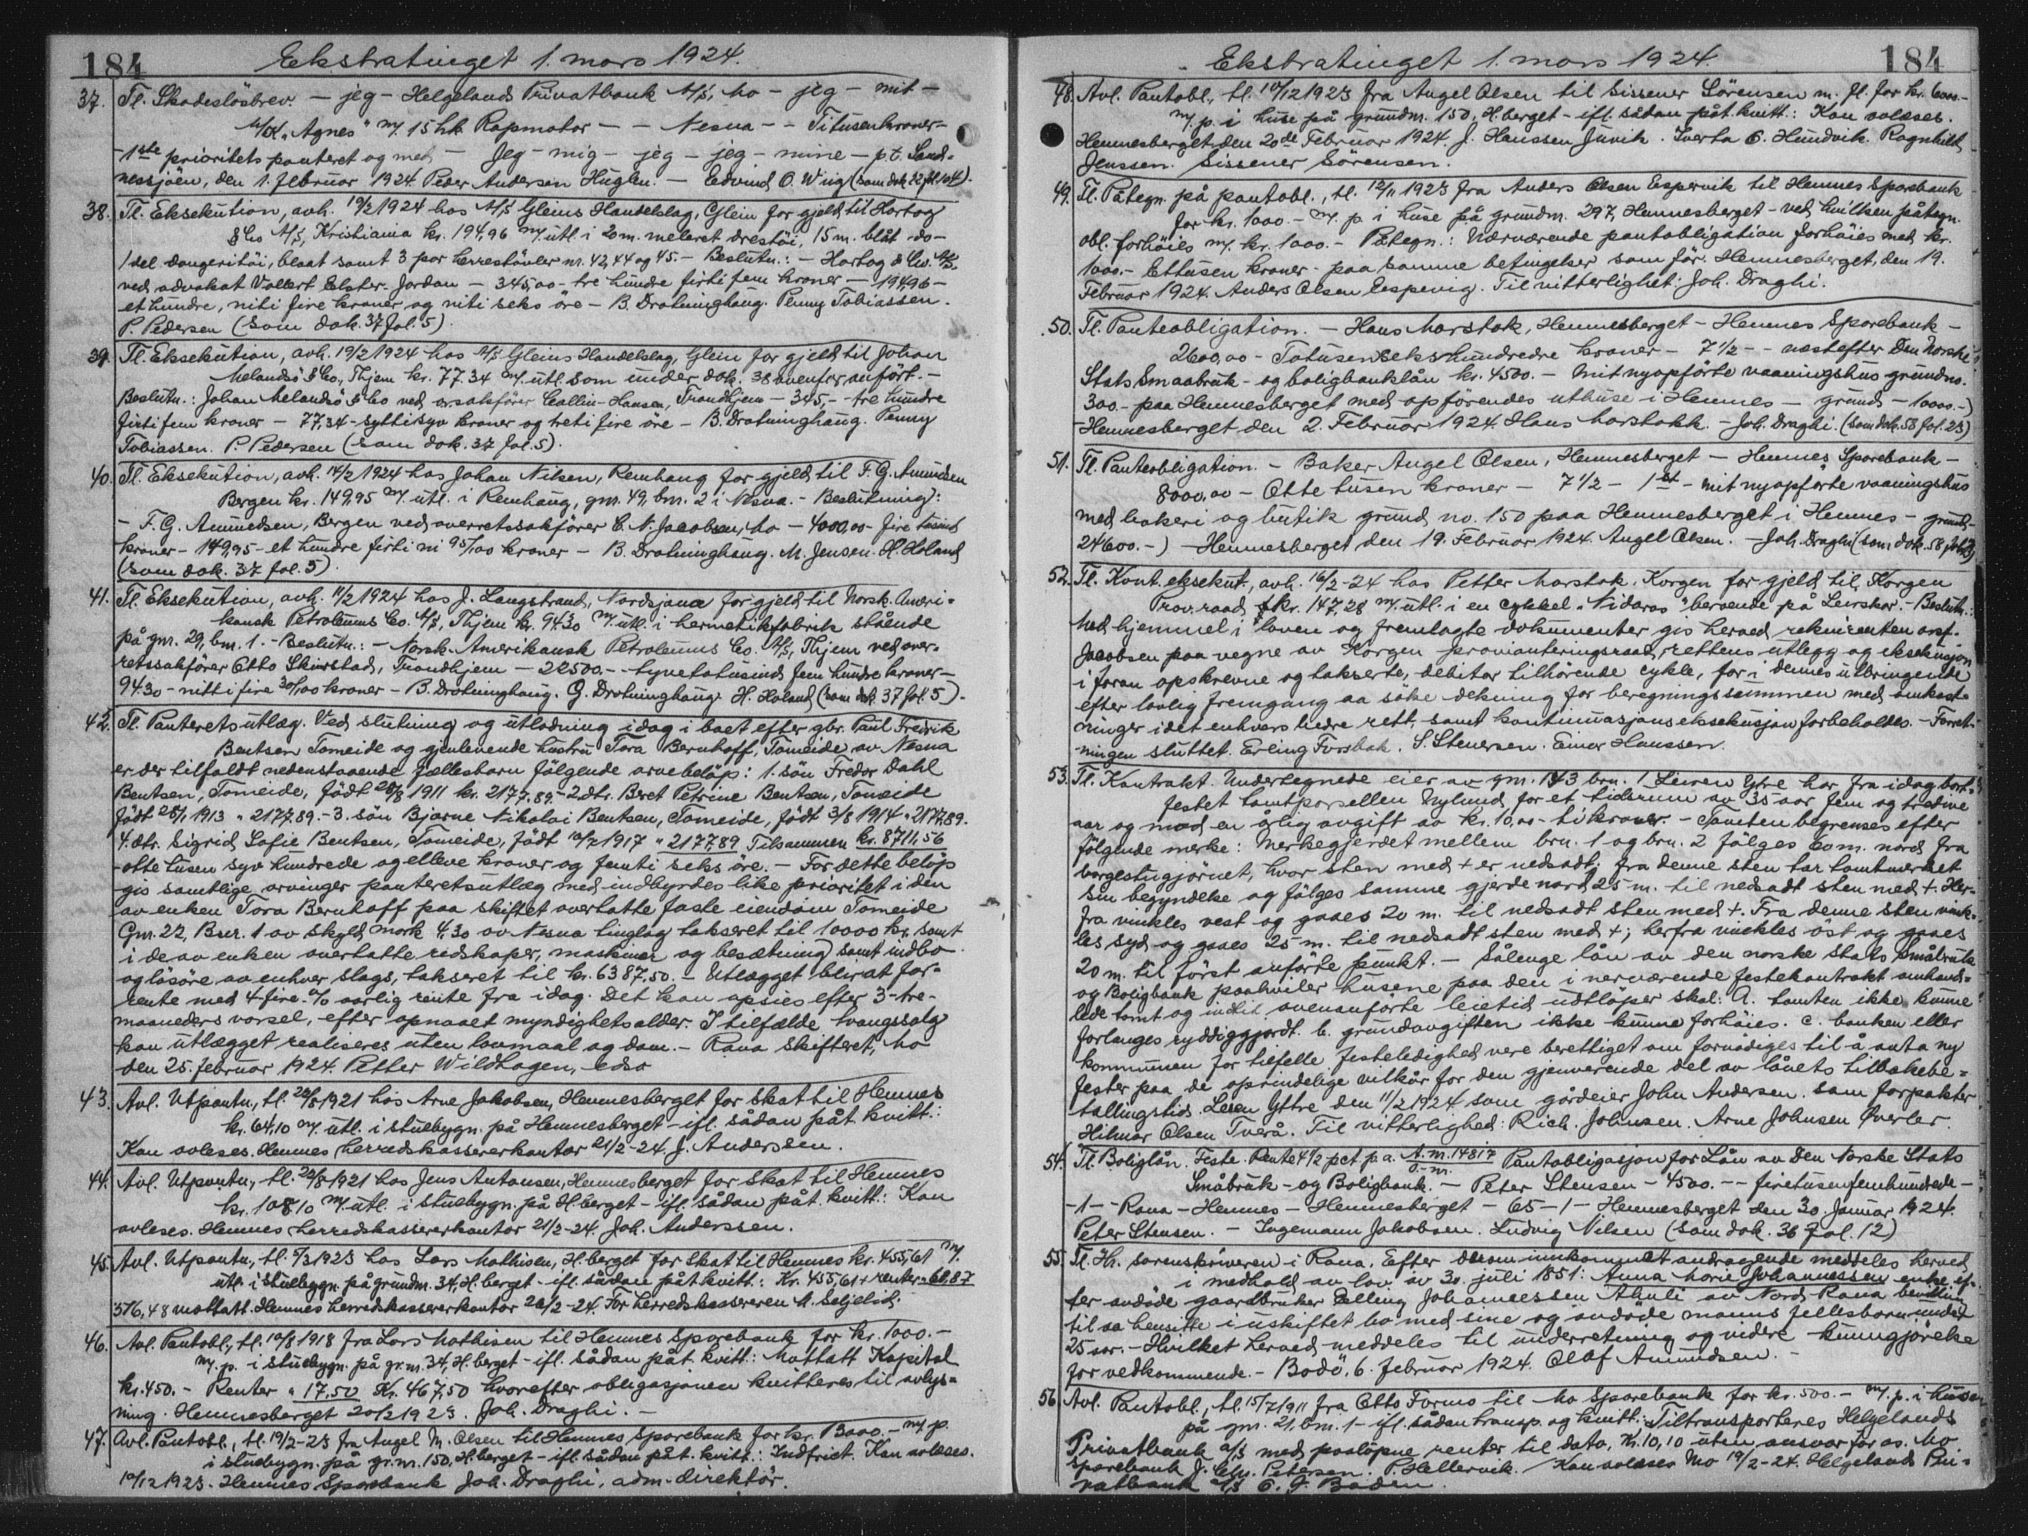 184
Ekstratinget 1. mars 1924.
37. Tl. Skadeslösbrev. — jeg — Helgelands Privatbank A/S, Mo — jeg — mit —
M/K „Agnes" m/ 15 hk Rapmotor — — Nesna — — Titusenkroner —
— 1ste prioritets panteret og med — Jeg — mig — jeg — jeg — mine — p.t. Sand-
nessjøen, den 1. februar 1924. Peder Andersen Huglen. — Edvind O. Wiig (som dok 32 fol. 104).
38. Tl. Eksekution, avh. 19/2 1924 hos A/S Gleins Handelslag, Glein for gjeld til Hartog
& Co A/S, Kristiania kr. 194,96 m/ utl. i 20 m. meleret drestöi, 15 m. blåt do —
1 del dongeritöi, blaat samt 3 par herrestövler nr. 42, 44 og 45. — Beslutn.: — Hartog & Co. A/S
ved advokat Vollert Elster. Jordan — 345,00 — tre hundre firti fem kroner — 194,96 —
et hundre, niti fire kroner, og niti seks öre — B. Drotninghaug. Penny Tobiassen.
P. Pedersen (som dok. 37 fol. 5).
39. Tl. Eksekution, avh. 19/2 1924 hos A/S Gleins Handelslag, Glein for gjeld til Johan
Melandsö & Co., Thjem kr. 77.34 m/ utl. som under dok. 38 ovenfor anfört. —
Beslutn.: Johan Melandsö & Co ved o.r.sakförer Collin-Hansen, Trondhjem — 345, — tre hundre
firti fem kroner — 77,34 — syttisyv kroner og treti fire öre — B. Drotninghaug. Penny
Tobiassen. P. Pedersen (som dok. 37 fol. 5).
40. Tl. Eksekution, avh. 14/2 1924 hos Johan Nilsen, Remhaug for gjeld til F. G. Amundsen
Bergen kr. 149,95 m/ utl. i Remhaug, gnr. 49, bnr. 2 i Nesna. — Beslutning:
— F. G. Amundsen, Bergen ved overretssakförer C. N. Jacobsen, Mo — 4000,00 — fire tusind
kroner — 149,95 — et hundre firti ni 95/100 kroner — B. Drotninghaug. M. Jensen. H. Holand
(som dok. 37 fol. 5).
41. Tl. Eksekution, avh. 11/2 1924 hos J. Langstrand, Nordsjona for gjeld til Norsk-Ameri-
kansk Petroleums Co. A/S, Thjem kr. 94.30 m/ utl. i hermetikfabrik stående
på gnr. 29, bnr. 1. — Beslutn.: — Norsk-Amerikansk Petroleums Co. A/S, Thjem ved over-
retssakförer Otto Skirstad, Trondhjem — 22500. — tyvetotusind fem hundre kroner —
94.30 — nitti fire 30/100 kroner — B. Drotninghaug. G. Drotninghaug. H. Holand (som dok. 37 fol. 5).
42. Tl. Panteretsutlæg. Ved slutning og utlodning idag i boet efter gbr. Paul Fredrik
Bentsen Tomeide og gjenlevende hustru Tora Bernhoff, Tomeide av Nesna
er der tilfaldt nedenstaaende fællesbarn fölgende arvebelöp: 1. sön Fredor Dahl
Bentsen, Tomeide, födt 28/8 1911 kr. 2177,89. — 2. dtr. Beret Petrine Bentsen, Tomeide
födt 25/1 1913 „ 2177,89. — 3. sön Bjarne Nikolai Bentsen, Tomeide, födt 3/8 1914 „ 2177,89.
4. dtr. Sigrid Sofie Bentsen, Tomeide, födt 10/2 1917 „ 2177,89 Tilsammen kr. 8711,56
— otte tusen syv hundrede og elleve kroner og femti seks öre. — For dette belöp
gis samtlige arvinger panteretsutlæg med indbyrdes like prioritet i den
av enken Tora Bernhoff paa skiftet overtatte faste eiendom Tomeide
Gnr. 22, Bnr. 1 av skyld mark 4.30 av Nesna tinglag takseret til 10000 kr. samt
i de av enken overtatte redskaper, maskiner og besætning samt indbo
og lösöre av enhver slags, takseret til kr. 6387,50. — Utlægget blir at for-
rente med 4 - fire - % aarlig rente fra idag. Det kan opsies efter 3 - tre -
maaneders varsel, efter opnaaet myndighetsalder. I tilfælde tvangssalg
kan utlægget realiseres uten lovmaal og dom. — Rana skifteret, Mo
den 25. februar 1924. Petter Wildhagen, edsv
43. Avl. Utpantn., tl. 28/8 1921 hos Arne Jakobsen, Hemnesberget for skat til Hemnes
kr. 64,10 m/ utl. i stuebygn. på Hemnesberget — ifl. sådan påt. kvitt.:
Kan avleses. Hemnes herredskassererkontor 21/2-24. J. Anderssen.
44. Avl. Utpantn., tl. 28/8 1921 hos Jens Antonsen, Hemnesberget for skat til Hemnes
kr. 108,10 m/ utl. i stuebygn. på H.berget — ifl. sådan påt. kvitt.: Kan
avleses. Hemnes herredskassererkontor 21/2-24. Joh. Anderssen.
45. Avl. Utpantn., tl. 6/3 1923 hos Lars Mathisen, H.berget for skat til Hemnes kr. 455,61 m/
utl. i stuebygn. på grundnr. 34, H.berget — ifl. sådan påt. kvitt.: Kr. 455,61 + renter = 60.87
516,48 mottatt. Hemnes herredskassererkontor 20/2-24. For herredskassereren A. Seljelid.
46. Avl. Pantobl., tl. 10/8 1918 fra Lars Mathisen til Hemnes Sparebank for kr. 1000. —
m/ p. i stuebygn. på gr.nr. 34, H.berget — ifl. sådan påt. kvitt.: Mottatt Kapital
kr. 450. — Renter „ 17,50 Kr. 467,50 hvorefter obligasjonen kvitteres til avlys-
ning. Hemnesberget 20/2 1923. Joh. Draghi. —
47. Avl. Pantobl., tl. 19/2-23 fra Angel M. Olsen til Hemnes Sparebank for kr. 13000. — m/ p.
i stuebygn. på gr.nr. 150, H.berget — ifl. sådan påt. kvitt.: Indfriet. Kan avleses.
10/12 1923. Hemnes Sparebank Joh. Draghi, adm. direktör.
184
Ekstratinget 1. mars 1924.
48. Avl. Pantobl., tl. 10/12 1923 fra Angel Olsen til Sissener Sörensen m. fl. for kr. 6000. —
m/ p. i huse på grundnr. 150, H.berget — ifl. sådan påt. kvitt.: Kan avlæses.
Hemnesberget, den 20de Februar 1924. J. Hanssen Juvik. Iverta O. Hundvik. Ragnhild
Jenssen. Sissener Sörensen.
49. Tl. Påtegn. på pantobl., tl. 12/11 1923 fra Anders Olsen Espervik til Hemnes Sparebank
for kr. 1000. — m/ p. i huse på grundnr. 297, Hemnesberget — ved hvilken påtegn.
obl. forhöies m/ kr. 1000. — Påtegn.: Nærværende pantobligation forhöies med kr.
1000. — Ettusen kroner — paa samme betingelser som för. Hemnesberget, den 19.
Februar 1924. Anders Olsen Eespervig. Til vitterlighet: Joh. Draghi.
50. Tl. Panteobligation. — Hans Marstok, Hemnesberget — Hemnes Sparebank —
2600,00 — Totusensekshundredre kroner — 7 1/2 — — næst efter Den Norske
Stats Smaabruk- og boligbanklån kr. 4500. — Mit nyopförte vaaningshus grundno.
300. — paa Hemnesberget med opförendes uthuse i Hemnes — grund — 10000. —)
— Hemnesberget den 2. Februar 1924. Hans Marstokk. — Joh. Draghi. (som dok. 58 fol. 23)
51. Tl. Panteobligation. — Baker Angel Olsen, Hemnesberget — Hemnes Sparebank —
8000,00 — Otte tusen kroner — 7 1/2 — 1ste — mit nyopförte vaaningshus
med bakeri og butik grund no. 150 paa Hemnesberget i Hemnes — grund —
24600. —) — Hemnesberget den 19. Februar 1924. Angel Olsen. — Joh. Draghi (som dok. 58 fol. 23)
52. Tl. Kont. eksekut., avh. 16/2-24 hos Petter Marstok. Korgen for gjeld til Korgen
Prov.raad, kr. 147,28 m/ utl. i en cykkel „Nidaros" beroende på Leirskar. — Beslutn.:
Med hjemmel i loven og fremlagte dokumenter gis herved rekvirenten orsf.
Jacobsen paa vegne av Korgen provianteringsraad rettens utlegg og eksekusjon
i foran opskrevne og takserte, debitor tilhörende cykle, for i dennes utbringende
efter lovlig fremgang aa söke dekning for beregningssummen med omkost-
ninger i det enhvers bedre rett, samt kontinuasjonseksekusjon forbeholdes. — Forret-
ningen sluttet. Erling Forsbak. S. Stenersen. Einar Hanssen.
53. Tl. Kontrakt. Undertegnede eier av gnr. 143 bnr. 1 Leiren Ytre har fra idag bort-
festet tomtparsellen Nylund for et tidsrum av 35 aar fem og tredive
aar og mod en årlig avgift av kr. 10,00 — ti kroner. — Tomten begrenses efter
fölgende merke: Merkegjerdet mellem bnr. 1 og bnr. 2 fölges 60 m. nord fra
borgestugjörnet, hvor sten med + er nedsadt, fra denne sten tar tomtmerket
sin begyndelse og fölges samme gjerde nord 25 m. til nedsadt sten med +. Her-
fra vinkles vest og gaaes 20 m. til nedsadt sten med +. Fra denne sten vink-
les syd og gaaes 25 m. til nedsadt sten med +; herfra vinkles öst og gaaes
20 m. til först anförte punkt. — Sålenge lån av den norske Stats Småbruk
og Boligbank paahviler husene paa den i nerværende festekontrakt omhand-
lede tomt og indtil ovenanförte leietid utlöper skal: A. tomten ikke kunne
forlanges ryddiggjordt. b. grundavgiften ikke kunne forhöies. c. banken eller
kommunen for tilfelle festeledighed vere berettiget om fornödiges til å anta ny
fester paa de oprindelige vilkår for den gjenverende del av lånets tilbakebe-
talingstid. Leren Yttre den 11/2 1924 som gårdeier John Andersen. som forpakter
Hilmar Olsen Tverå. Til vitterlighed: Rich. Johnsen. Arne Johnsen Överler.
54. Tl. Boliglån. Feste. Rente 4 1/2 pct p.a. A.nr. 14817 Pantobligasjon for Lån av Den Norske Stats
Småbruk- og Boligbank. — Peter Stensen — 4500. — — firetusenfemhundrede —
— 1 — Rana — Hemnes — Hemnesberget — 65 — 1 — Hemnesberget den 30. Januar 1924.
Peter Stensen. — Ingemann Jakobsen. Ludvig Nilsen (som dok. 36 fol. 12)
55. Tl. Hr. sorenskriveren i Rana. Efter derom innkommet andragende meddeles herved
i medhold av lov av 30. juli 1851: Anna Marie Johannessen enke ef-
ter avdöde gaardbruker Elling Johannessen Ahuli av Nord Rana bevilling
til aa hensitte i uskiftet bo med sine og avdöde manns fellesbarn under
25 aar. — Hvilket herved meddeles til underretning og videre kunngjörelse
for vedkommende. — Bodö, 6. februar 1924. Olaf Amundsen. —
56. Avl. Pantobl., tl. 15/7 1911 fra Otto Formo til Mo Sparebank for kr. 500. — m/ p. i husene
på gnr. 21, bnr. 1 — ifl. sådan transp. og kvitt.: Tiltransporteres Helgelands
Privatbank a/s med paalöpne renter til dato, Kr. 10,10 uten ansvar for os. Mo
Sparebank J. Chr. Petersen. P. Hellervik. / Kan avleses Mo 19/2-24. Helgelands Pri-
vatbank a/s O. J. Baden.